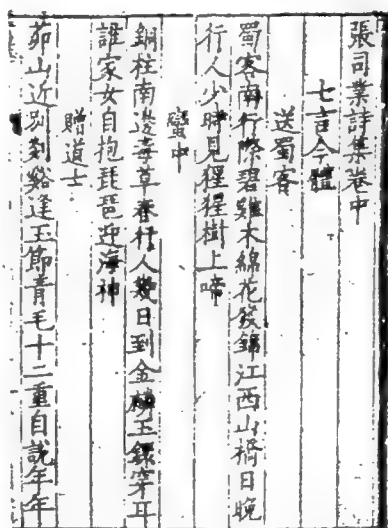 張司業詩集卷中
七言今體
送蜀客
蜀客南行際碧雞木綿花發錦江西山橋日晚
行人少時見猩猩樹上啼
蠻中
銅柱南邊毒草春行人幾日到金鄰玉鐶穿耳
誰家女自抱琵琶迎海神
贈道士
茆山近別剡谿逢玉節青毛十二重自說年年